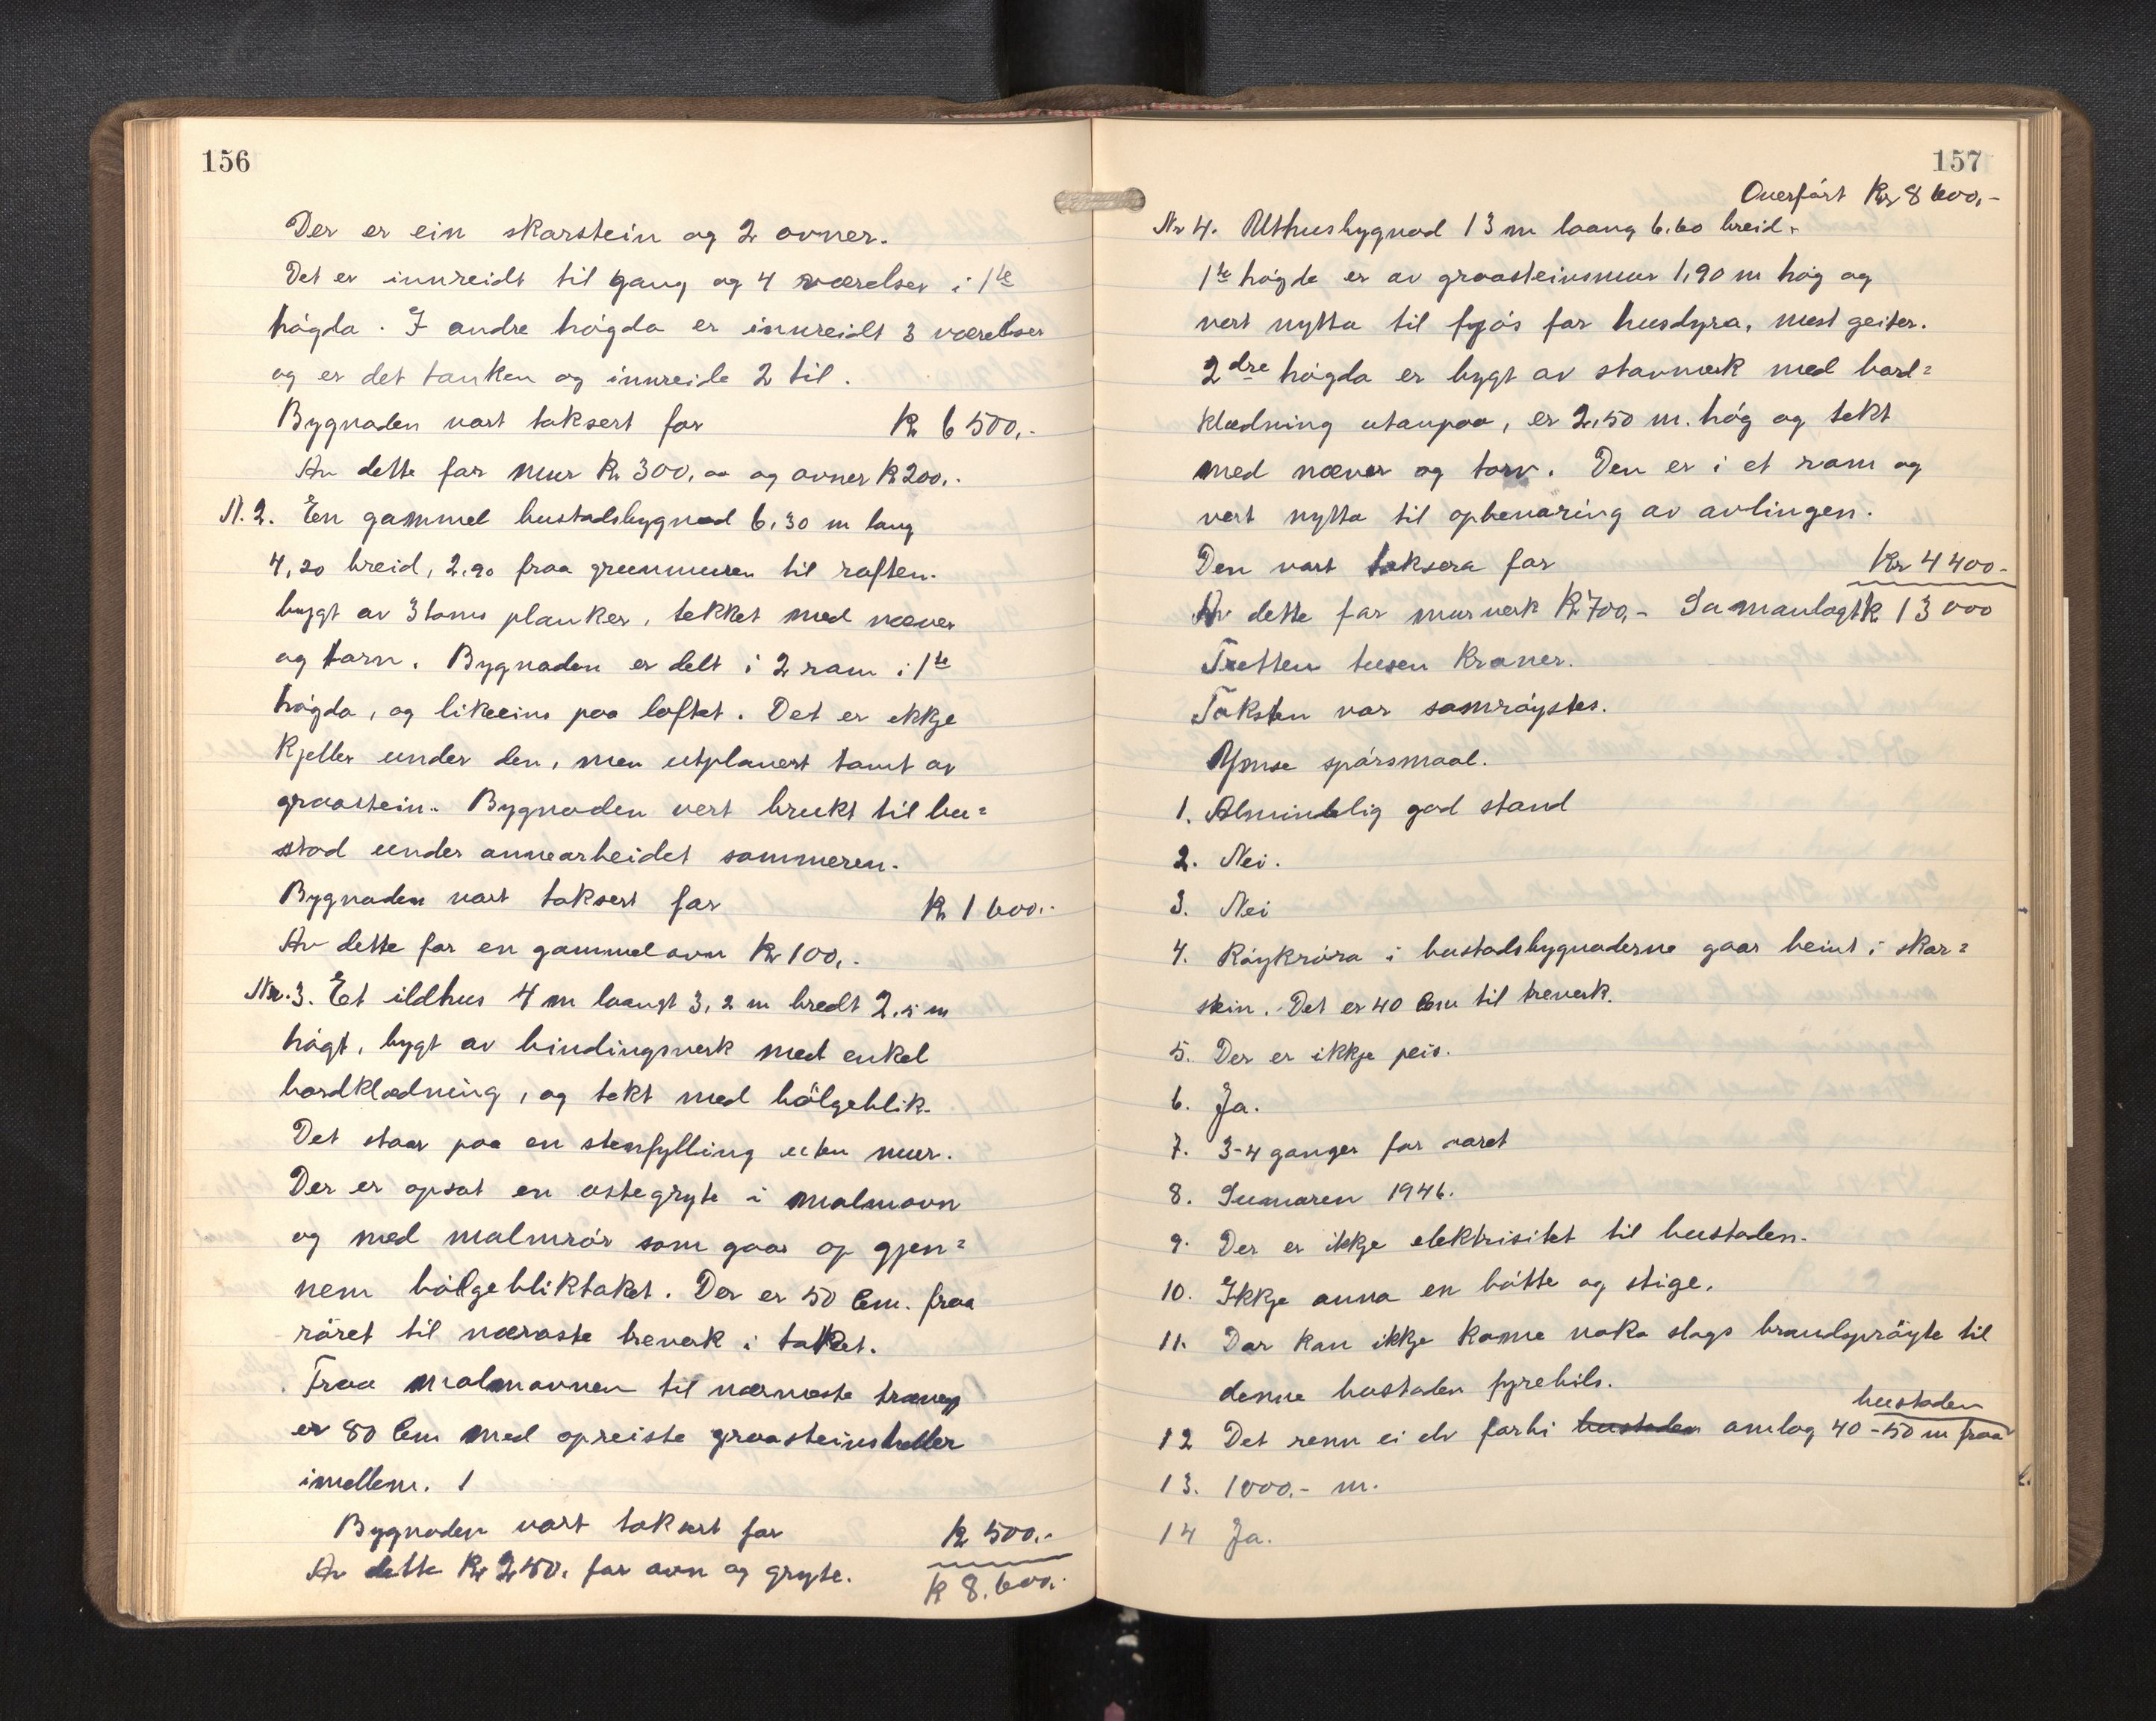 156
Der er ein skarstein og 2 ovner.
Det er innreidt til gang og 4 værelser i 1te
høgda. I andre høgda er innreidt 3 værelser
og er det tanken og innreide 2 til.
Bygnaden vart taksert for Kr 6500,-
Av dette for mur Kr 300,00 og ovner Kr 200,-
N. 2. En gammel bustadsbygnad 6,30 m lang
4,20 breid, 2,90 fraa grunnmuren til raften.
bygt av 3 toms planker, tekket med næver
og torv. Bygnaden er delt i 2 rom i 1te
høgda, og likeeins paa loftet. Det er ekkje
Kjeller under den, men utplanert tomt av
graastein. Bygnaden vert brukt til bu=
stad under annearbeidet sommeren.
Bygnaden vart taksert for Kr 1600,-
Av dette for en gammel ovn Kr 100,-
Nr. 3. Et ildhus 4 m laangt 3,2 m bredt 2,5 m
høgt, bygt av bindingsverk med enkel
bordklædning, og tekt med bölgeblik.
Det staar paa en stenfylling uten mur.
Der er opsat en ostegryte i malmovn
og med malmrör som gaar op gjen=
nem bölgebliktaket. Der er 50 Cm. fraa
röret til næraste treverk i taket.
Fraa malmovnen til nærmeste trævegg
er 80 Cm med opreiste graasteinsheller
imellem. 1
Bygnaden vart taksert for Kr 500,-
Av dette Kr 250, for ovn og gryte.
Kr 8.600,-
157
Overført Kr 8600,-
Nr 4. Uthusbygnad 13 m laang 6.60 breid.
1te høgde er av graasteinsmur 1,90 m høg og
vert nytta til fjøs for husdyra, mest geiter.
2dre høgda er bygt av stavverk med bord=
klædning utanpaa, er 2,50 m. høg og tekt
med næver og torv. Den er i et rom og
vert nytta til opbevaring av avlingen.
Den vart taksera for Kr 4400-
Av dette for murverk Kr 700,- Samanlagt K 13000
Tretten tusen Kroner.
Taksten var samrøystes.
Ymse spørsmaal.
1. Almindelig god stand
2. Nei.
3. Nei
4. Röykröra i bustadsbygnaderne gaar beint i skor=
stein. Det er 40 Cm til treverk.
5. Der er ikkje peis.
6. Ja.
7. 3-4 ganger for aaret
8. Sumaren 1946.
9. Der er ikkje elektrisitet til bustaden.
10. Ikkje anna en bøtte og stige.
11. Dar kan ikkje kome noka slags brandsprøyte til
denne bustaden fyrebils.
bustaden
12 Det renn ei elv forbi bustaden omlag 40-50 m fraa
13. 1000,- m.
14 Ja.